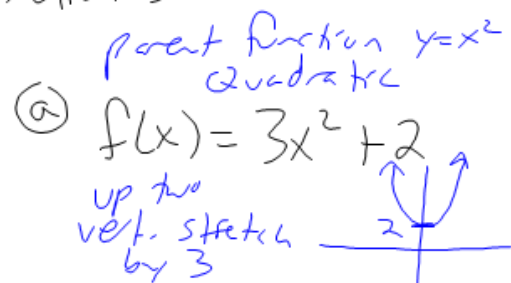 parent function y=x²
Quadratic
(a) f(x) = 3x² + 2
up two
vert. stretch
by 3
2